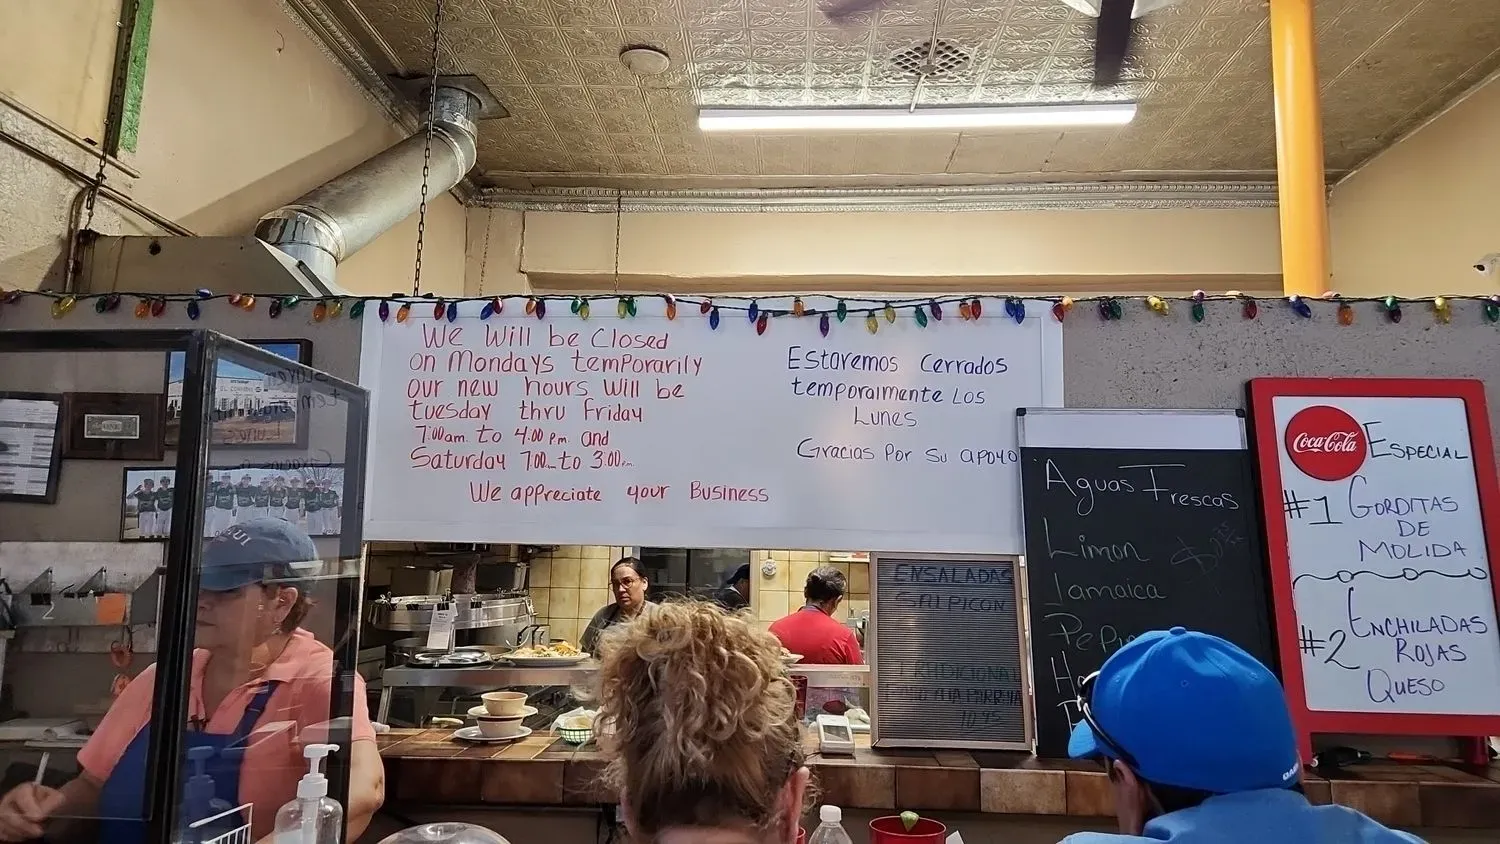 We Will be Closed
on Mondays temporarily
our new hours will be
tuesday thru Friday
7:00am to 4:00 pm and
Saturday 7:00am to 3:00pm
We appreciate your Business
Estaremos Cerrados
temporalmente Los
Lunes
Gracias Por Su apoyo
ENSALADAS
SALPICON
TRADICIONAL
10.95
Aguas Frescas
Limon
Jamaica
Coca-Cola
ESPECIAL
#1 GORDITAS
DE
MOLIDA
#2 ENCHILADAS
ROJAS
QUESO